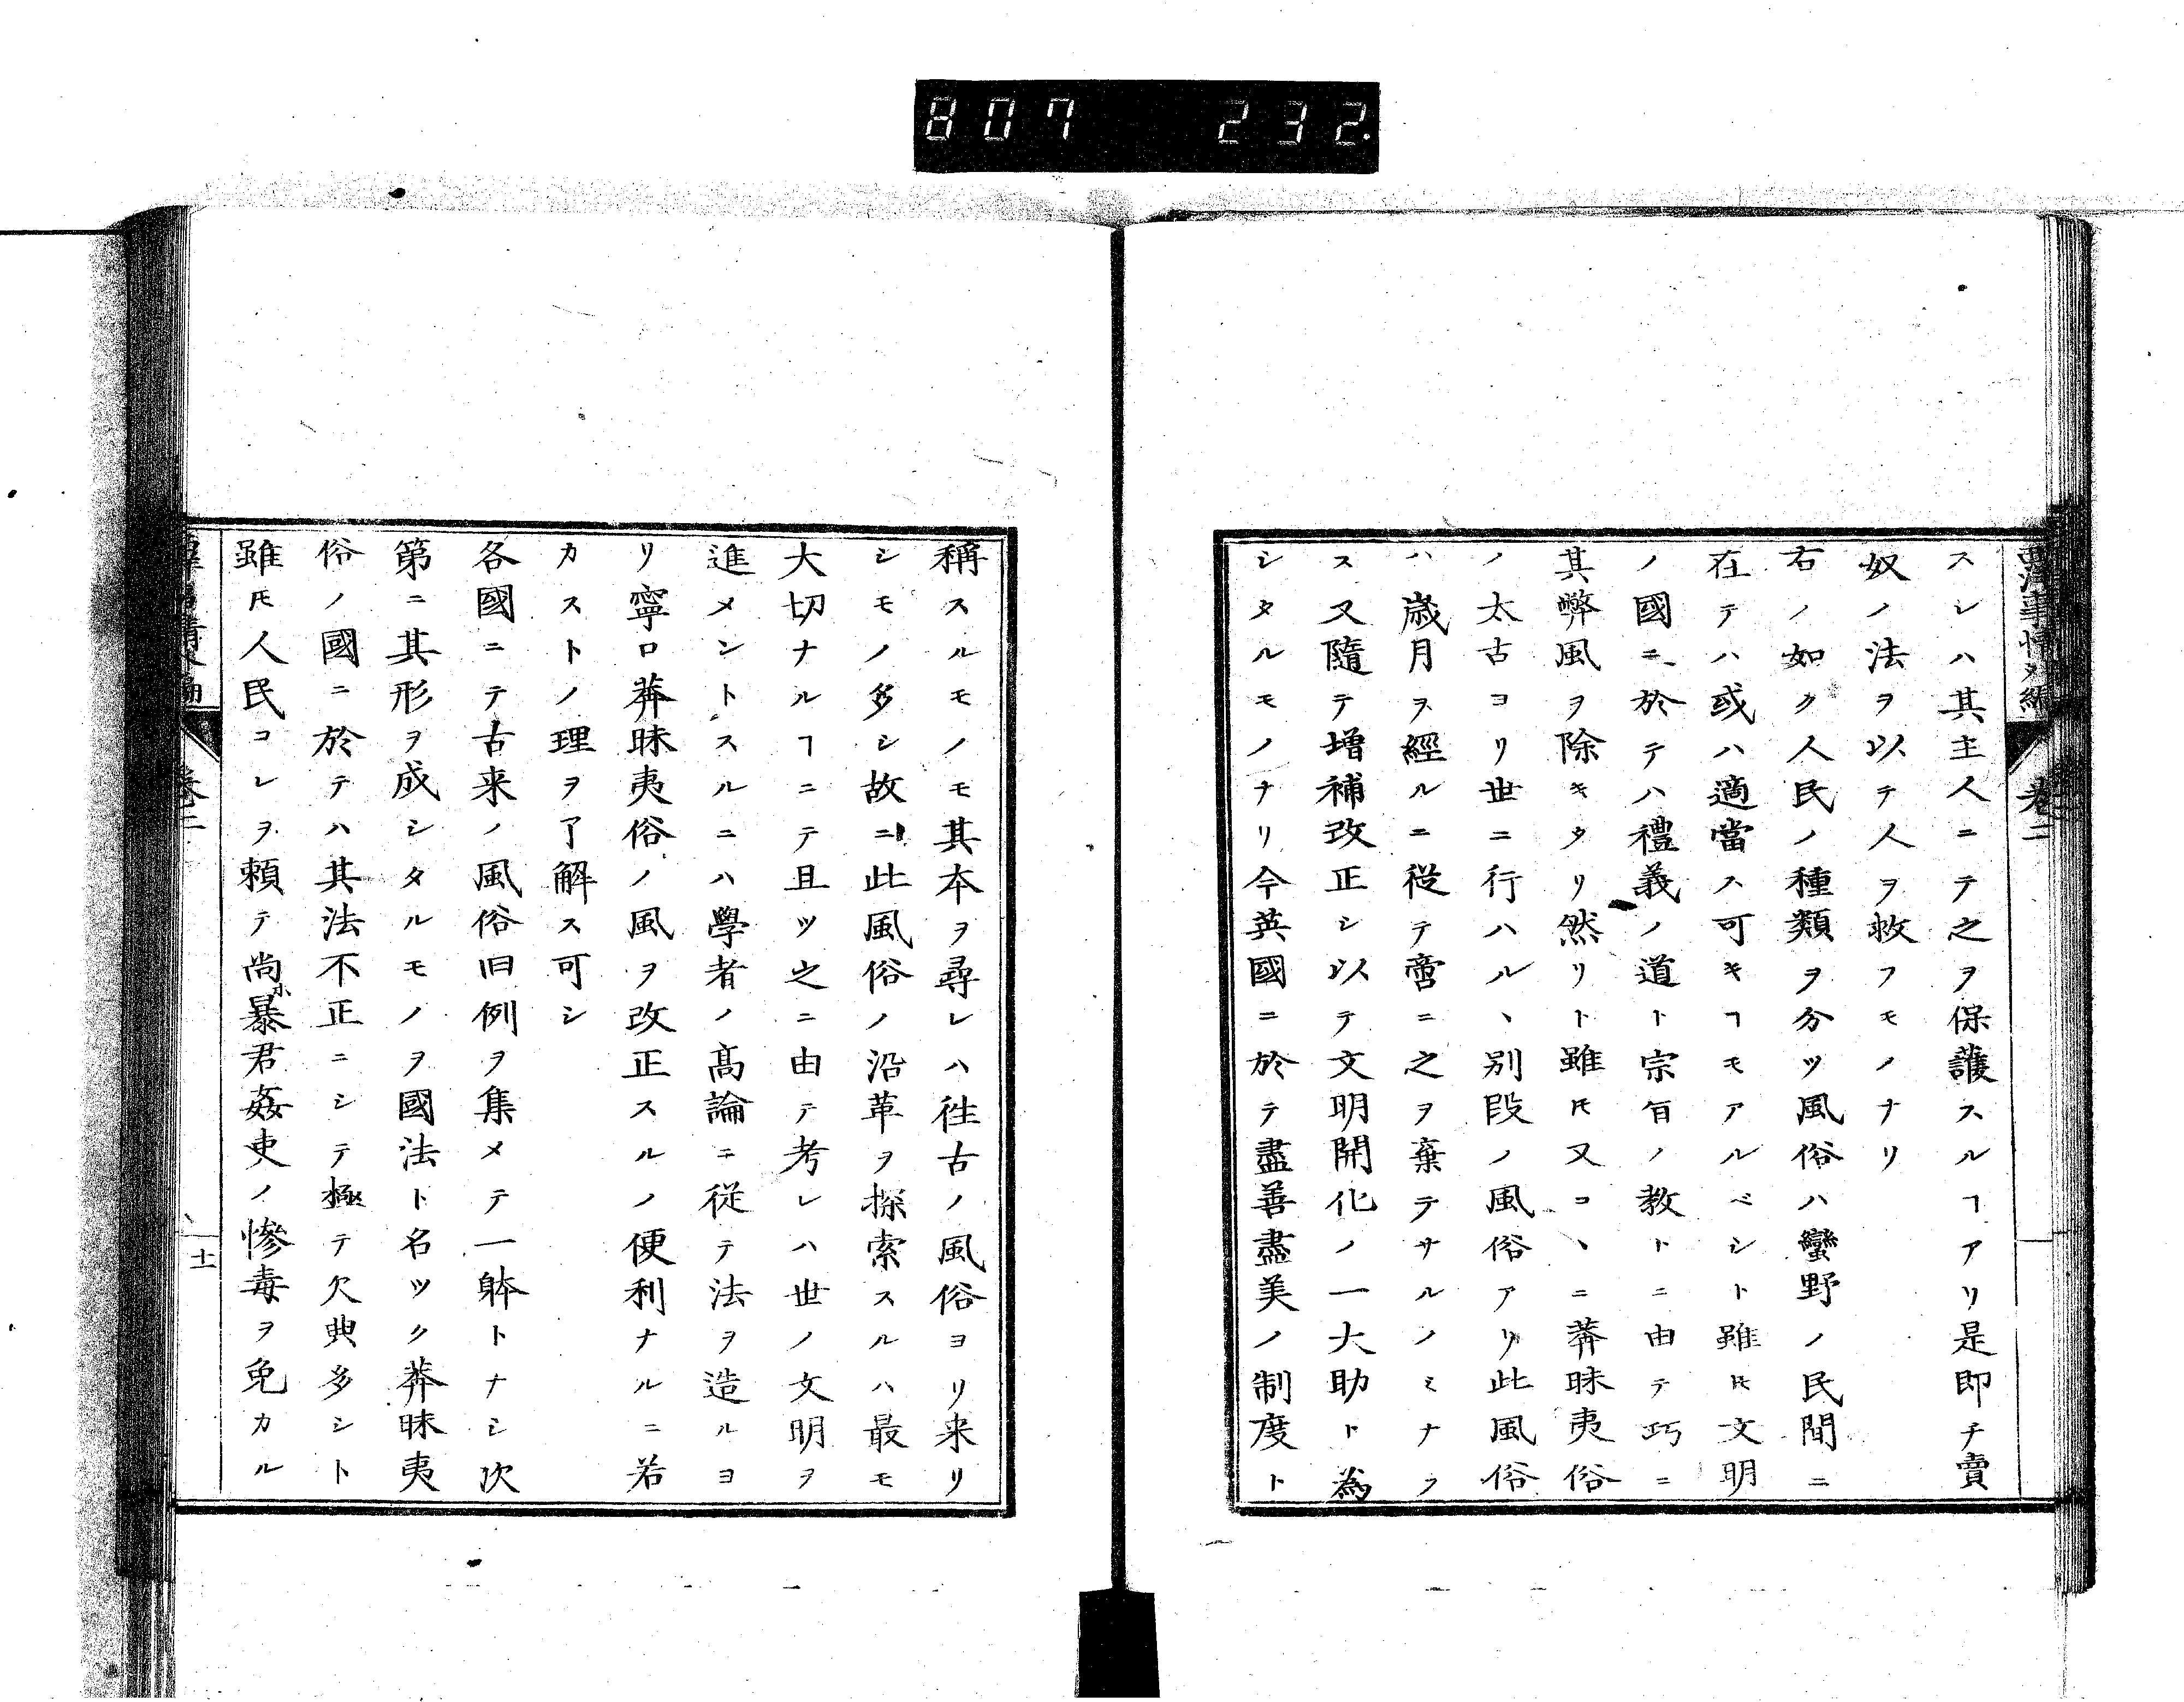 807 232
西洋事情外編 巻二
スレハ其主人ニテ之ヲ保護スルヿアリ是即チ賣
奴ノ法ヲ以テ人ヲ救フモノナリ
右ノ如ク人民ノ種類ヲ分ツ風俗ハ蠻野ノ民間ニ
在テハ或ハ適當ス可キヿモアルベシト雖𪜈文明
ノ國ニ於テハ禮義ノ道ト宗旨ノ教トニ由テ巧ニ
其弊風ヲ除キタリ然リト雖𪜈又コヽニ莾昧夷俗
ノ太古ヨリ世ニ行ハルヽ別段ノ風俗アリ此風俗
ハ歳月ヲ經ルニ從テ啻ニ之ヲ棄テサルノミナラ
ス又隨テ增補改正シ以テ文明開化ノ一大助ト為
シタルモノナリ今英國ニ於テ盡善盡美ノ制度ト
稱スルモノモ其本ヲ尋レハ徃古ノ風俗ヨリ来リ
シモノ多シ故ニ此風俗ノ沿革ヲ探索スルハ最モ
大切ナルヿニテ且ツ之ニ由テ考レハ世ノ文明ヲ
進メントスルニハ學者ノ髙論ニ從テ法ヲ造ルヨ
リ寧ロ莾昧夷俗ノ風ヲ改正スルノ便利ナルニ若
カストノ理ヲ了解ス可シ
各國ニテ古来ノ風俗旧例ヲ集メテ一躰トナシ次
第ニ其形ヲ成シタルモノヲ國法ト名ツク莾昧夷
俗ノ國ニ於テハ其法不正ニシテ極テ欠典多シト
雖𪜈人民コレヲ頼テ尚ホ暴君姦吏ノ慘毒ヲ免カル
巻二
十一